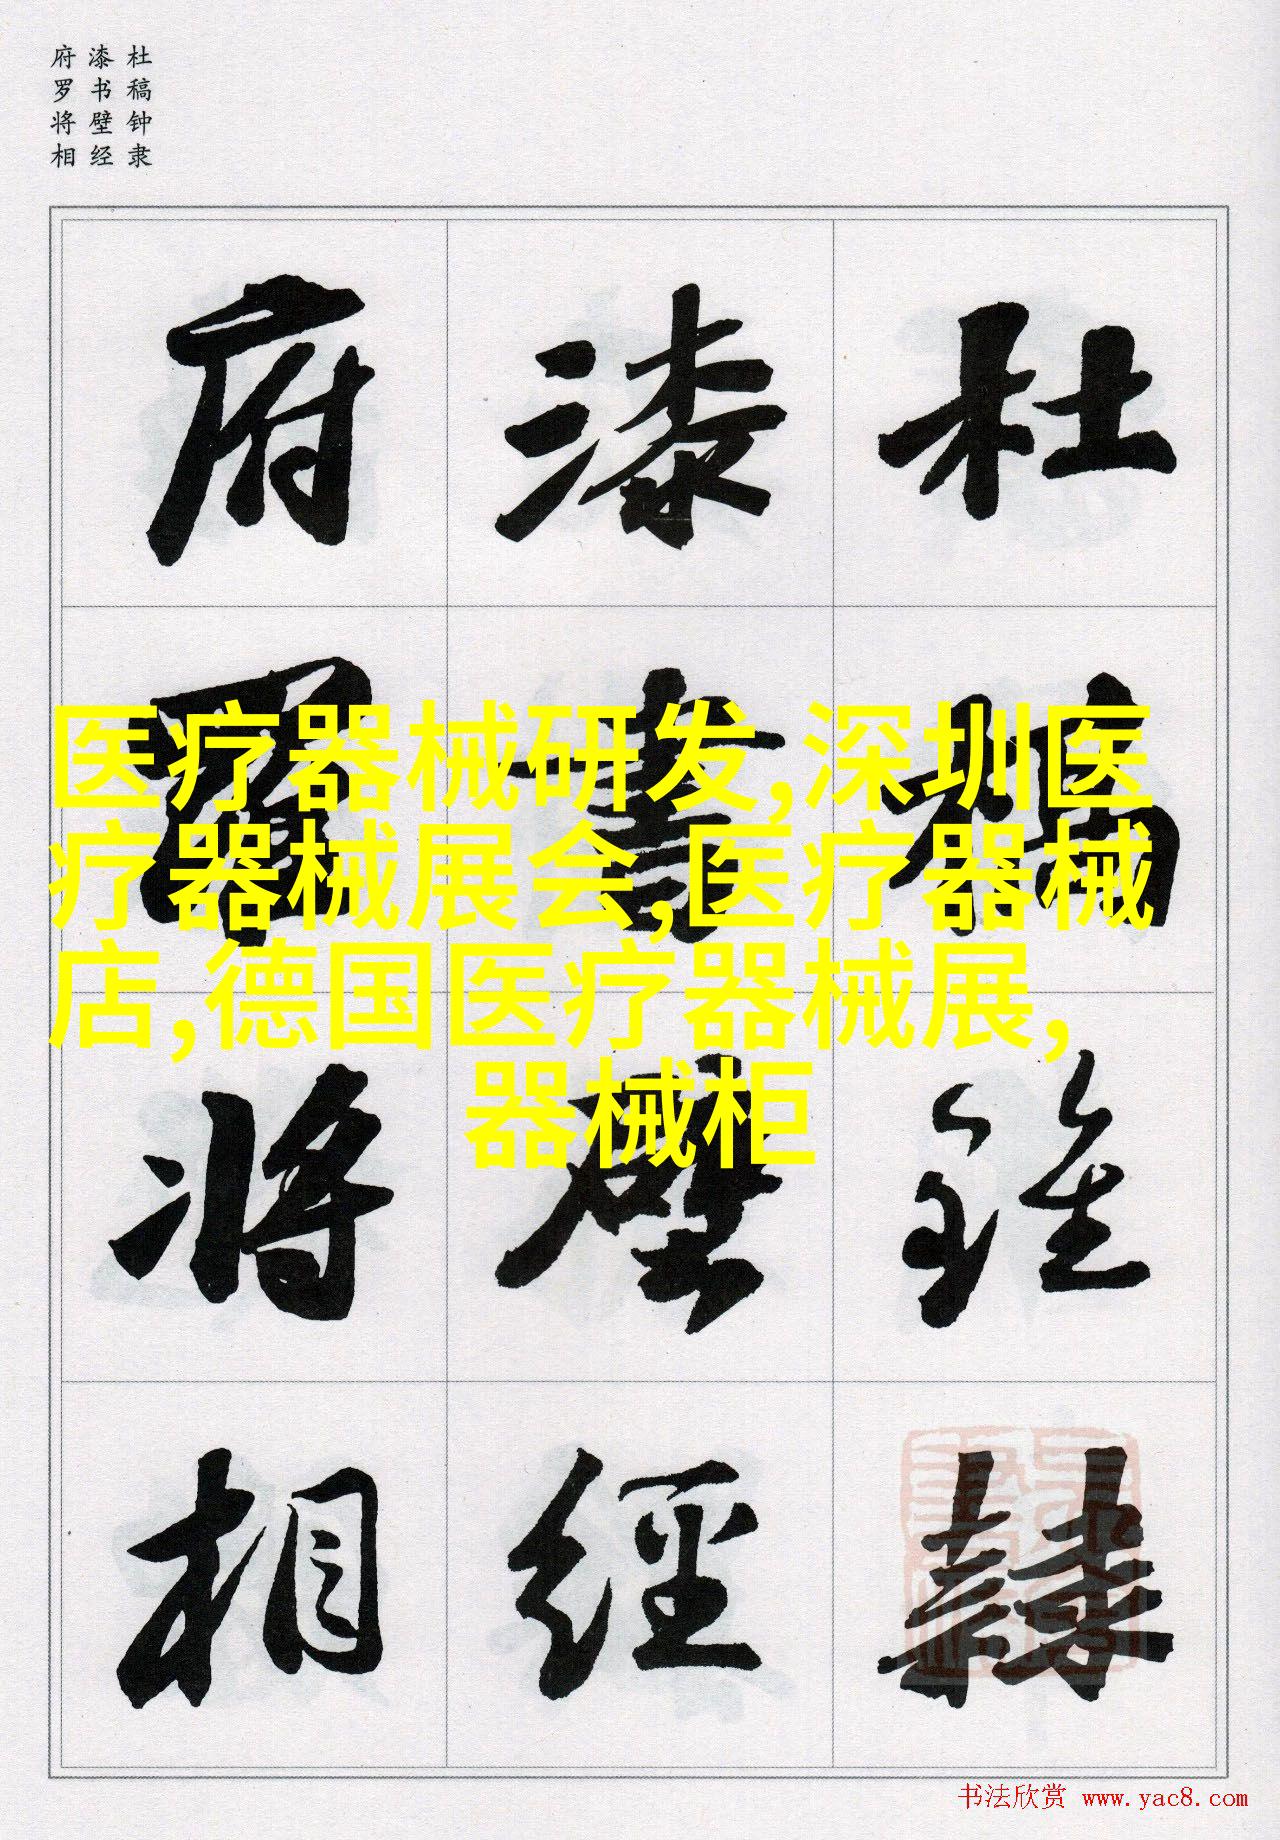 杜稿钟隶
漆书壁经
府罗将相
杜稾鍾隸
漆書壁經
府羅將相
医疗器械研发,深圳医
疗器械展会,医疗器械
店,德国医疗器械展,
器械柜
书法欣赏 www.yac8.com